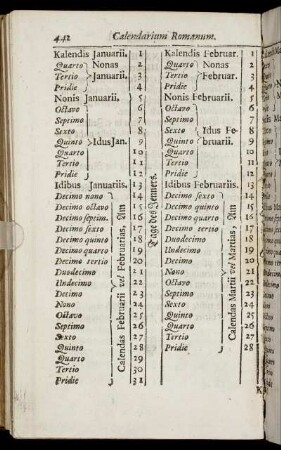 442 Calendarium Romanum.
Kalendis Januarii. 1
Quarto 2
Tertio 3
Pridie 4
Nonas Januarii.
Nonis Januarii. 5
Octavo 6
Septimo 7
Sexto 8
Quinto 9
Quarto 10
Tertio 11
Pridie 12
Idus Jan.
Idibus Januariis. 13
Decimo nono 14
Decimo octavo 15
Decimo septim. 16
Decimo sexto 17
Decimo quinto 18
Decimo quarto 19
Decimo tertio 20
Duodecimo 21
Undecimo 22
Decimo 23
Nono 24
Octavo 25
Septimo 26
Sexto 27
Quinto 28
Quarto 29
Tertio 30
Pridie 31
Calendas Februarii vel Februarias, Am
Tage des Jenners.
Kalendis Februar. 1
Quarto 2
Tertio 3
Pridie 4
Nonas Februar.
Nonis Februarii. 5
Octavo 6
Septimo 7
Sexto 8
Quinto 9
Quarto 10
Tertio 11
Pridie 12
Idus Februarii.
Idibus Februariis. 13
Decimo sexto 14
Decimo quinto 15
Decimo quarto 16
Decimo tertio 17
Duodecimo 18
Undecimo 19
Decimo 20
Nono 21
Octavo 22
Septimo 23
Sexto 24
Quinto 25
Quarto 26
Tertio 27
Pridie 28
Calendas Martii vel Martias, Am
K